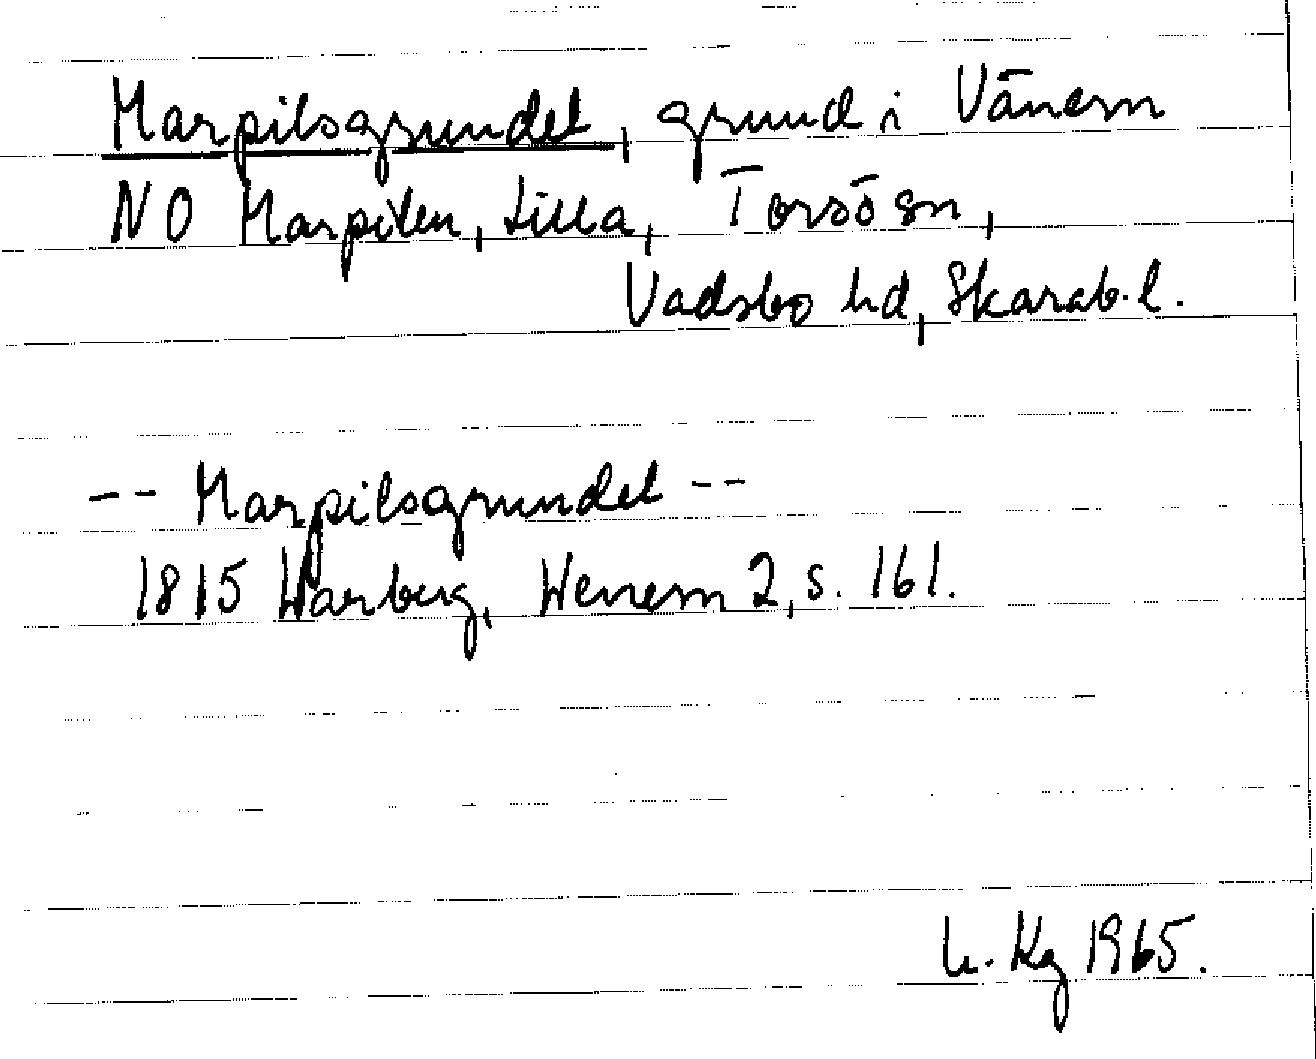 Harpilsgrundet, grund i Vänern
NO Harpilen, Lilla, Torsö sn,
Vadsbo hd, Skarab. l.
-- Harpilsgrundet --
1815 Warberg, Wenern 2, s. 161.
Kg 1965.